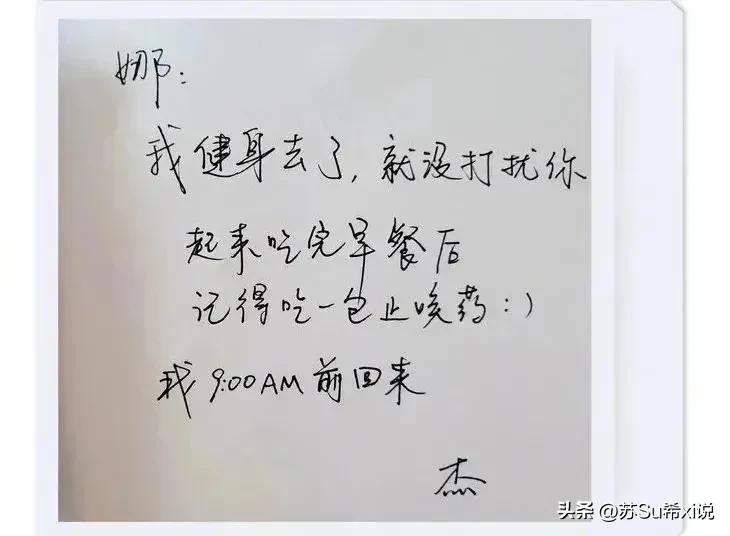 娜:
我健身去了,就没打扰你
起来吃完早餐后
记得吃一包止咳药:)
我 9:00AM 前回来
杰
头条 @苏Su希xi说